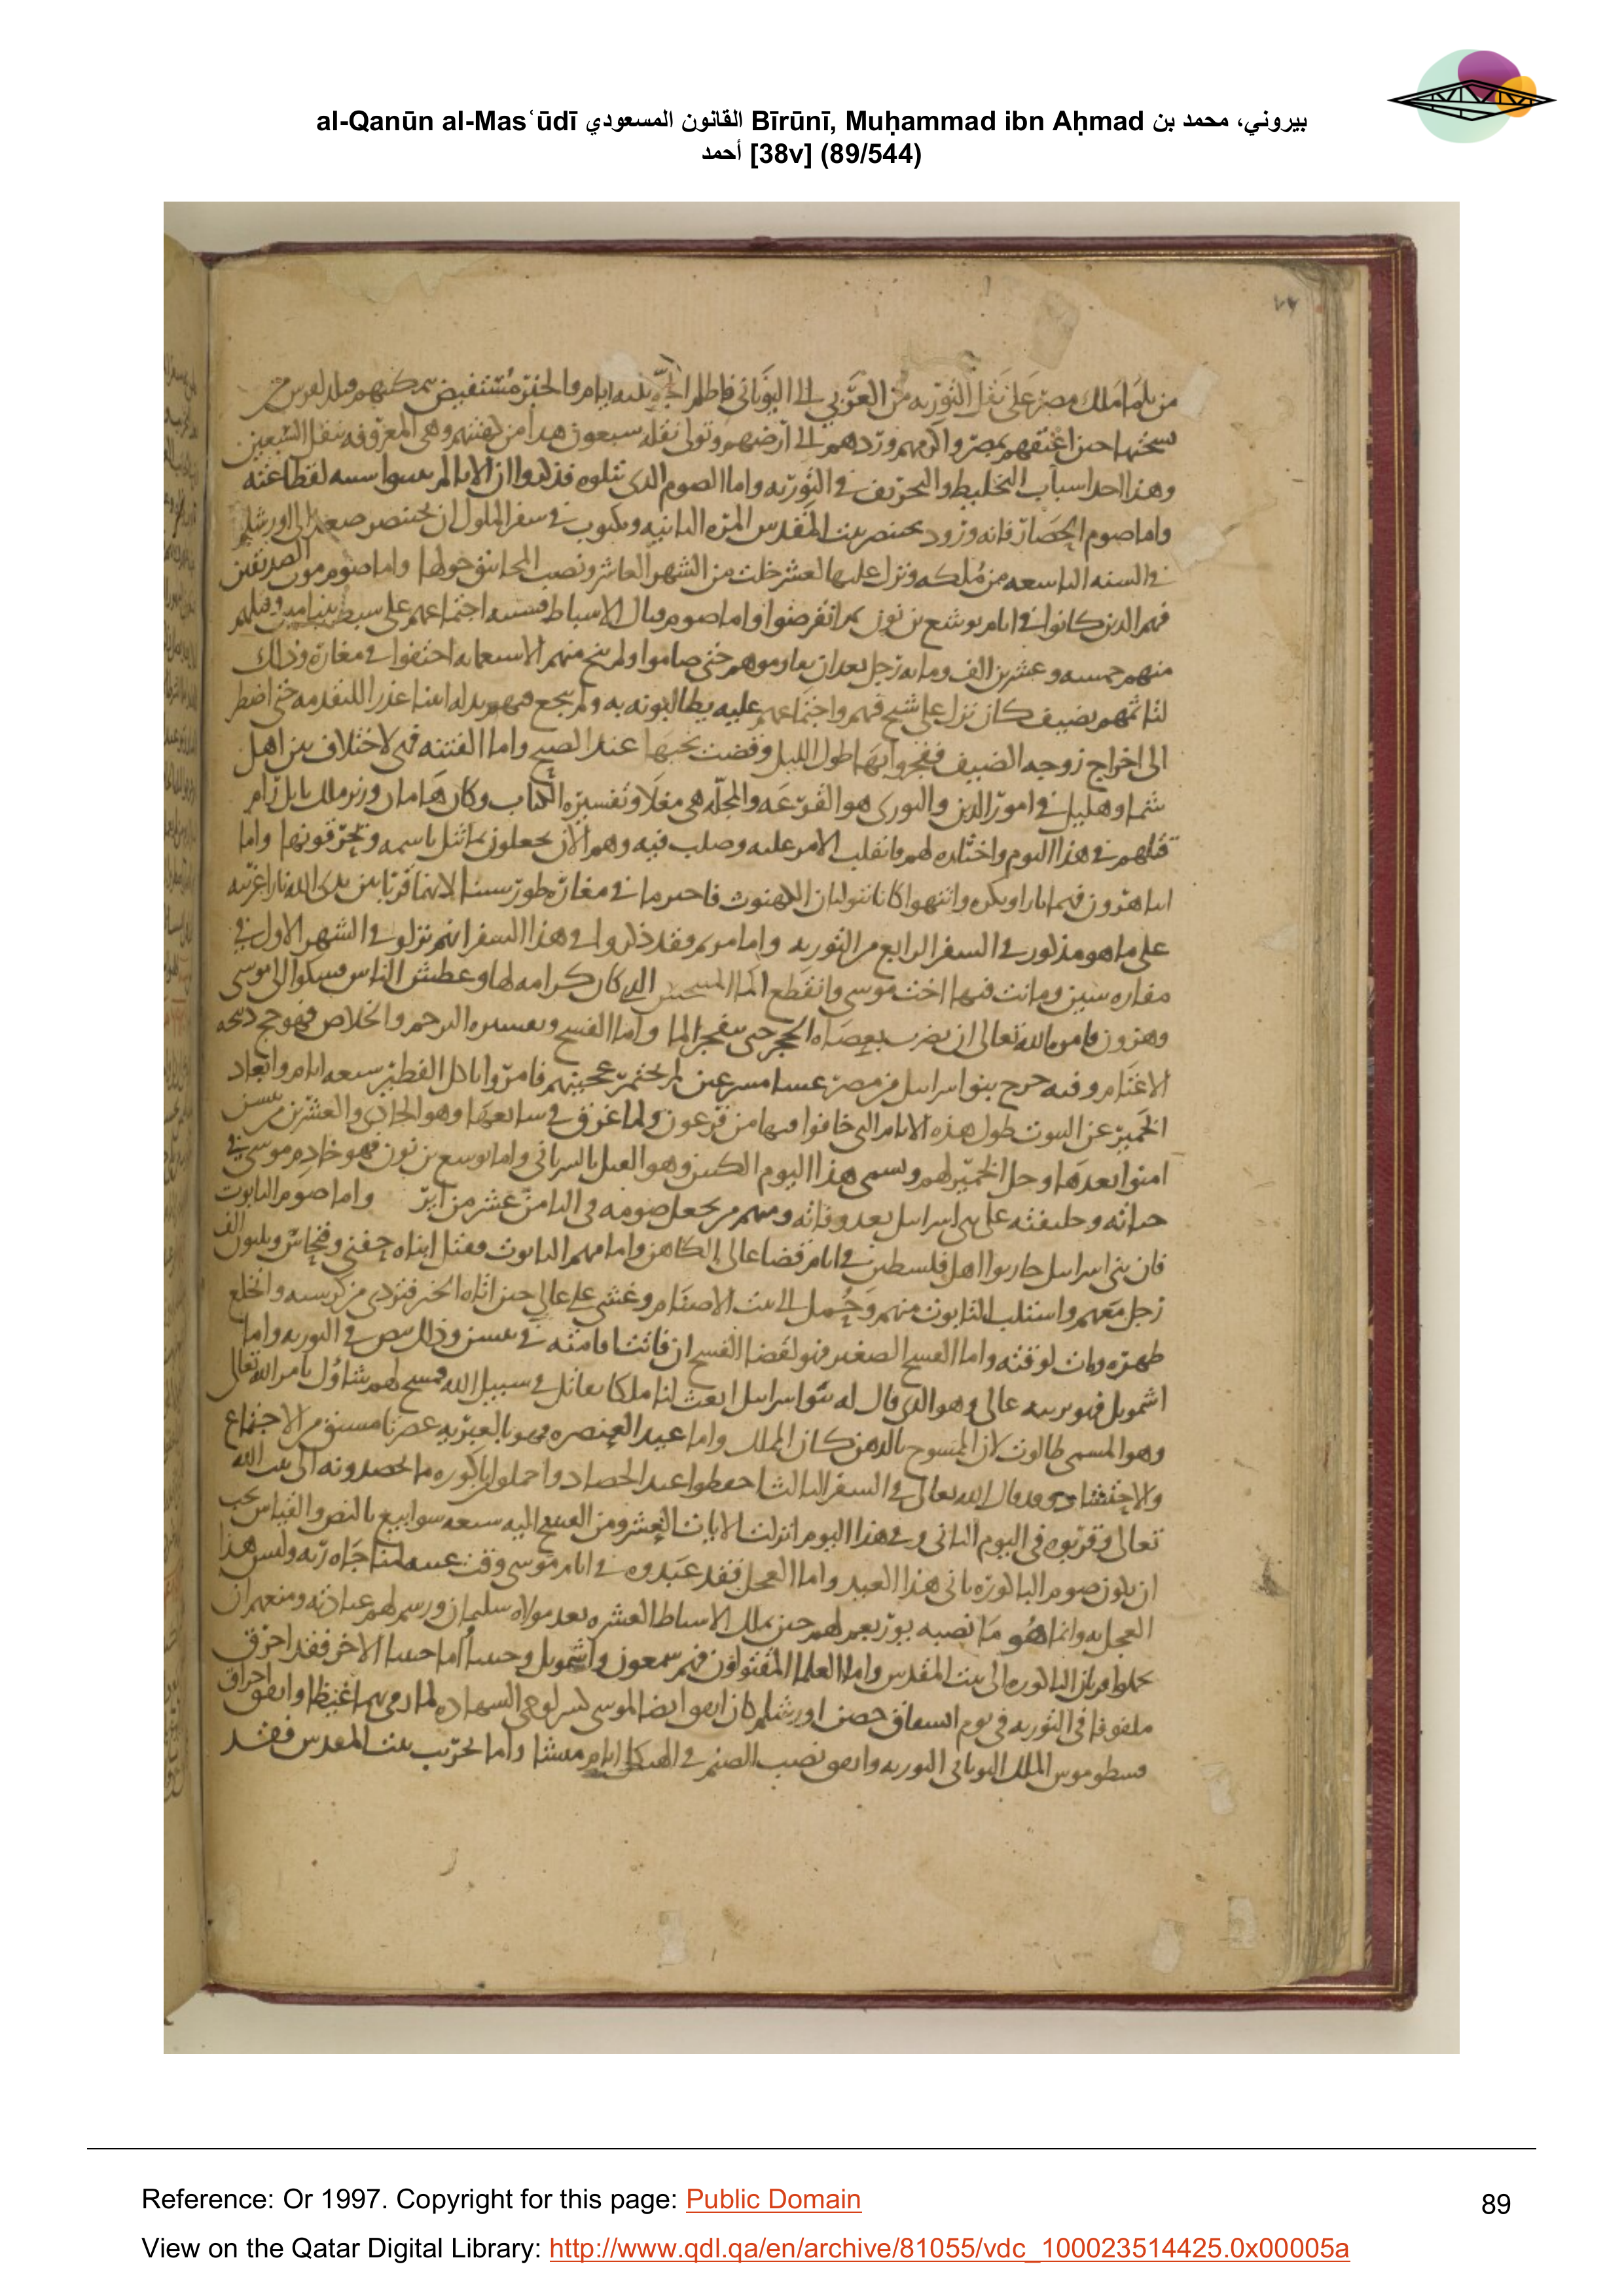 al-Qanūn al-Masʿūdī القانون المسعودي Bīrūnī, Muḥammad ibn Aḥmad بيروني، محمد بن
أحمد [38v] (89/544)
على نقل التورية من العربي الى اليوناني فاظلم الجو ثلثه ايام والخبر مستفيض
حين اعتقهم بمصر واكرمهم وردهم الى ارضهم وتولى نقله سبعون
وهذا احد اسباب التخليط والتحريف في التورية واما الصوم الذى نتلوه فذكروا ان
واما صوم الحصار فانه ورود بختنصر بيت المقدس المرة الثانيه ومكتوب في سفر الملوك ان بختنصر صعد الى اورشليم
في السنه التاسعه من ملكه ونزل عليها لعشر خلت من الشهر العاشر ونصب المجانيق حولها واما صوم موت الصديقين
فهم الذين كانوا في ايام يوشع بن نون ثم انقرضوا واما صوم قتال الاسباط فسببه اجتماعهم على سبط بنيامين وقتلهم
منهم خمسه وعشرين الف ومايه رجل بعد ان قاوموهم حتى صاموا ولم ينج منهم الا ستمايه اختفوا في مغارة وذلك
بضيف كان نزل على شيخ فيهم واجتماعهم عليه يطالبونه به ولم ينجع فيهم حتى اضطر
الى اخراج زوجه الضيف ففجروا بها طول الليل وقضت نحبها عند الصبح واما الفتنه فهي لاختلاف بين اهل
شما وهليل في امور الدين والبورى هو القرعه والمجله هي مغلا وتفسيره الكتاب وكان هامان وزير ملك بابل رام
قتلهم في هذا اليوم واختاره لهم فانقلب الامر عليه وصلب فيه وهم الان يجعلون تماثيل باسمه ويحرقونها واما
على ما هو مذكور في السفر الرابع من التورية واما مريم فقد ذكروا في هذا السفر انهم نزلوا في الشهر الاول في
مفازه سين وماتت فيها اخت موسى وانقطع الذي كان كرامه لها وعطش الناس فشكوا الى موسى
وهرون فامره الله تعالى ان يضرب بعصاه الحجر حتى ينفجر الما واما الفسح وتفسيره الترحم والخلاص فهو
الاغنام وفيه خرج بنو اسرائيل من مصر مسرعين لم يختمر عجينهم فامروا باكل الفطير سبعه ايام وابعاد
الخمير عن البيوت طول هذه الايام التي خافوا فيها من فرعون ولما غرق في سابعها وهو الحادي والعشرين من نيسن
امنوا بعدها وحل الخمير لهم ويسمى هذا اليوم الكبس وهو بالسرياني واما يوشع بن نون فهو خادم موسى في
حياته وخليفته على بني اسرائيل بعد وفاته ومنهم من يجعل صومه في الثامن عشر من اير واما صوم التابوت
فان بني اسرائيل حاربوا اهل فلسطين في ايام قضا عالى الكاهن التابوت فقتل ابناه حفني وفنحاس وثلثون الف
رجل معهم واستلب التابوت منهم وحمل الى بيت الاصنام وغشى على عالى حين اتاه الخبر فتردى من كرسيه وانخلع
ظهره ومات لوقته واما الفسح الصغير فهو لقضا الفسح ان فاتت اقامته في نيسن وذلك نص في التورية واما
اشمويل فهو عالى وهو الذي قال له بنو اسرائيل ابعث لنا ملكا يقاتل في سبيل الله فمسح لهم شاؤل بامر الله تعالى
وهو المسمى طالوت لان المسوح بالدهن كان الملك واما عيد العنصره فهو بالعبريه عصرتا مشتق من الاجتماع
والاحتشاد وقد قال الله تعالى في السفر الثالث احفظوا عيد الحصاد واحملوا باكوره ما تحصدونه الى بيت الله
تعالى وقربوه في اليوم الثاني وفي هذا اليوم انزلت الايات العشر ومن الفسح اليه سبعه سوابيع بالنص والقياس يجب
ان يكون صوم الباكورة ثاني هذا العيد واما العجل فقد عبدوه في ايام موسى وقت غيبته لمناجاه ربه وليس هذا
العجل به وانما هو ما نصبه يوربعم لهم حين ملك الاسباط العشره بعد مولاه سليمان ورسم لهم عبادته ومنعهم ان
يحملوا قربان الباكوره الى بيت المقدس واما العلما المقتولون فهم سمعون واشمويل وحنينا اما حنينا الاخر فقد احرق
ملفوفا في التورية في يوم حصن اورشليم كان اتفق ايضا لموسى كسر لوحى الشهاده لما رمى بهما غيظا واتفق احراق
الملك اليوناني التوريه واتفق نصب الصنم في الهيكل ايام منشا واما تخريب بيت المقدس فقد
Reference: Or 1997. Copyright for this page: Public Domain
89
View on the Qatar Digital Library: http://www.qdl.qa/en/archive/81055/vdc_100023514425.0x00005a